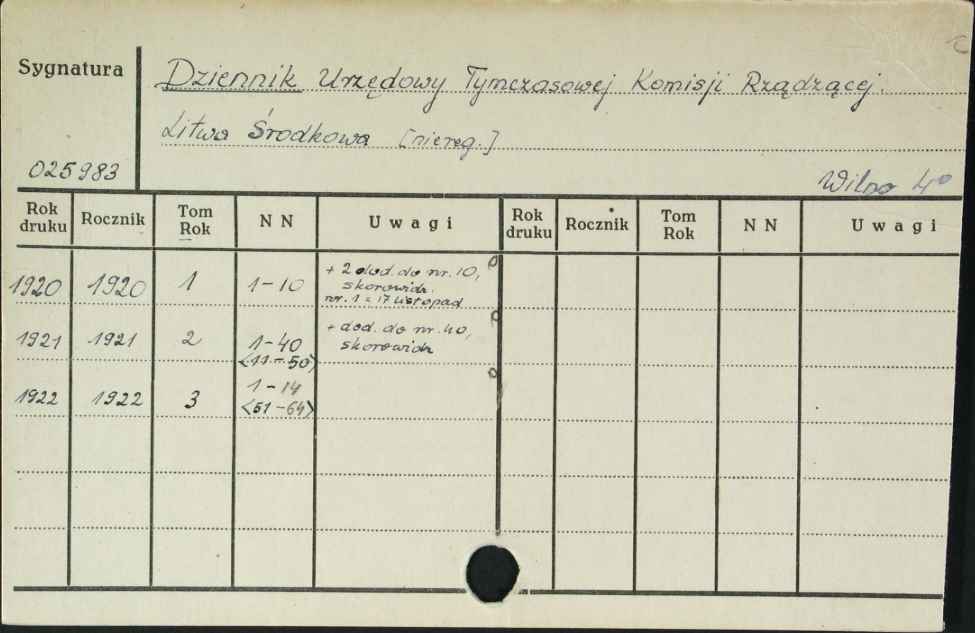 Sygnatura
Dziennik Urzędowy Tymczasowej Komisji Rządzącej.
Litwa Środkowa [niereg.]
025983
Wilno 4º
Rok druku Rocznik Tom Rok NN Uwagi Rok druku Rocznik Tom Rok NN Uwagi
1920 1920 1 1-10 + 2 dod. do nr. 10,
skorowidz.
nr. 1 = 17 listopad
1921 1921 2 1-40 + dod. do nr. 40,
<11-50> skorowidz
1922 1922 3 1-14
<51-64>